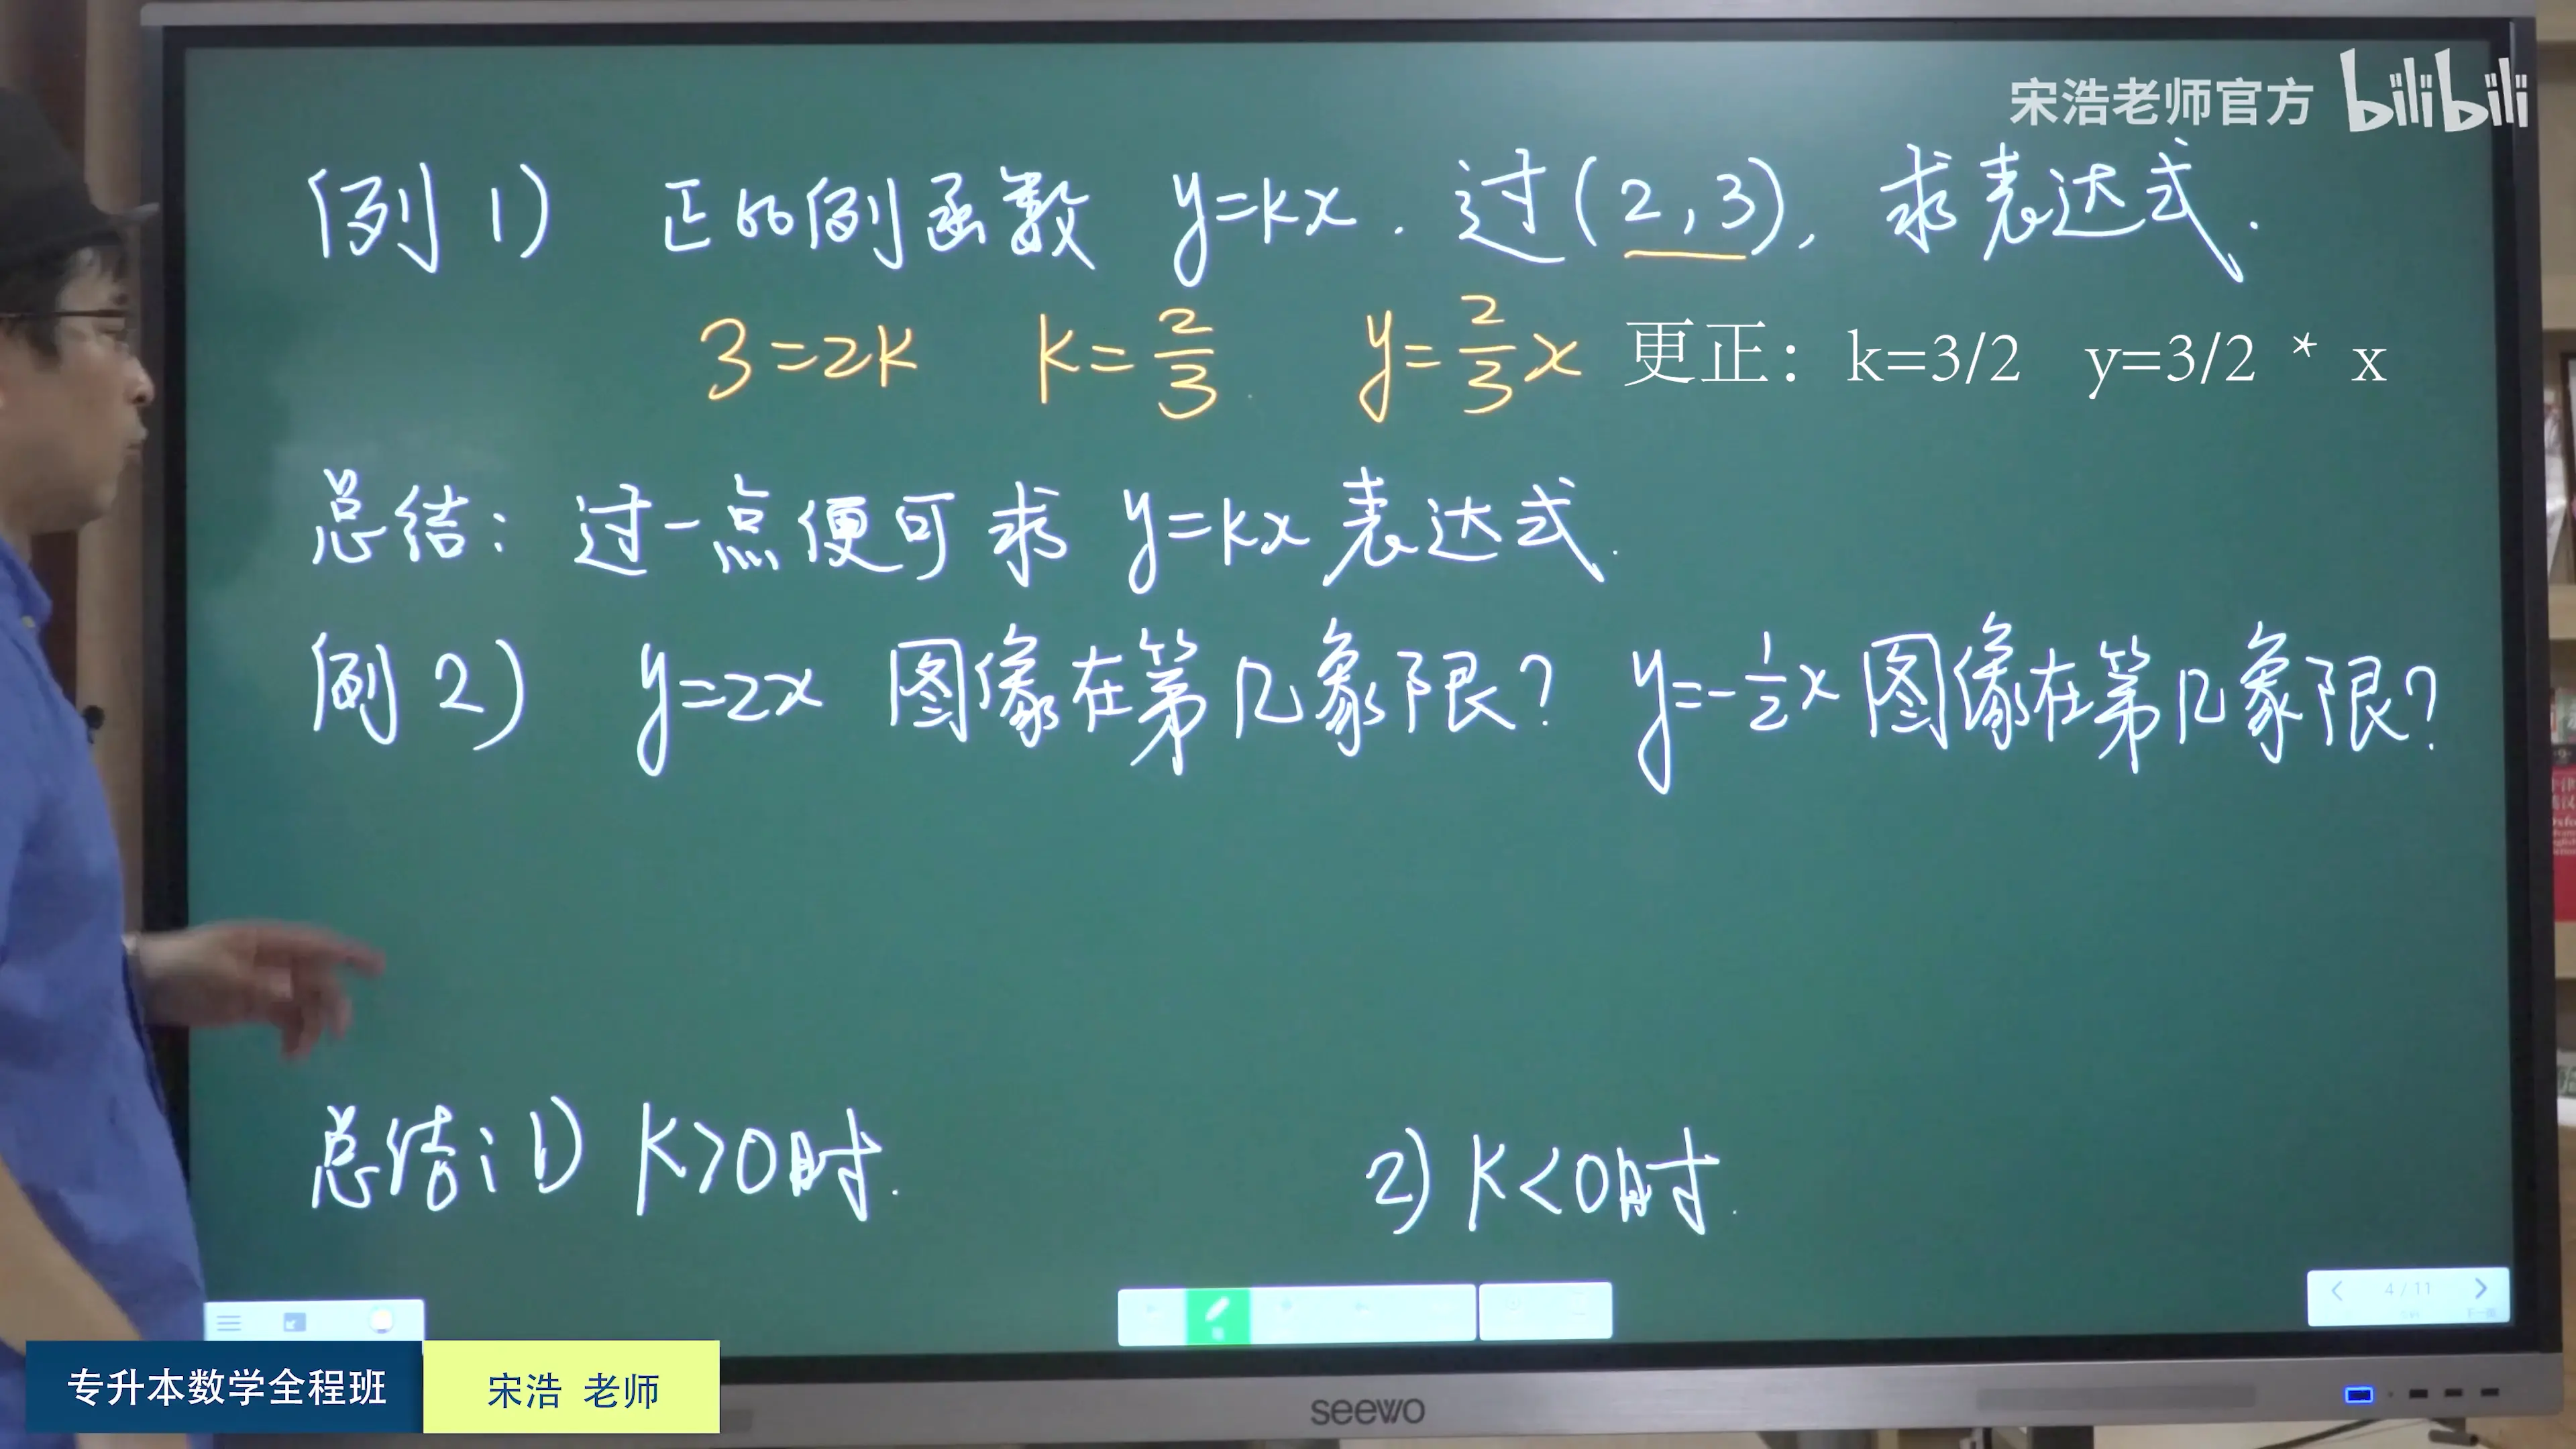 宋浩老师官方 bilibili
例 1) 正比例函数 y=kx. 过(2,3), 求表达式.
3=2k k=2/3 y=2/3x 更正：k=3/2 y=3/2 * x
总结: 过一点便可求 y=kx 表达式.
例 2) y=2x 图像在第几象限? y=-1/2x 图像在第几象限?
总结: 1) k>0时. 2) k<0时.
4/11
专升本数学全程班 宋浩 老师
seewo